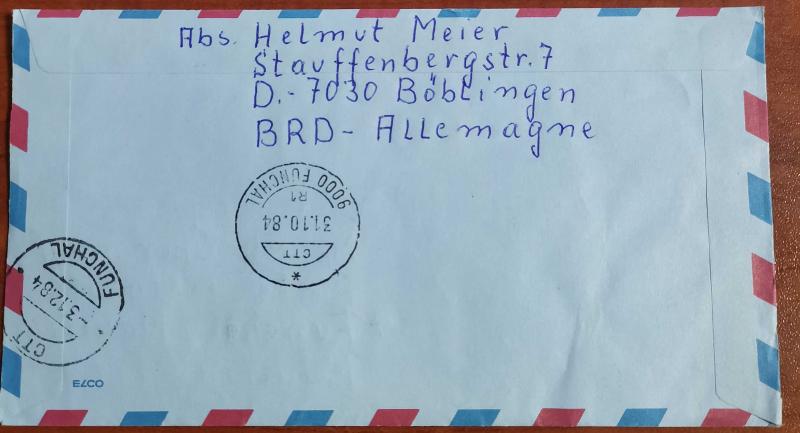 Abs. Helmut Meier
Stauffenbergstr. 7
D.-7030 Böblingen
BRD- Allemagne
9000 FUNCHAL
R1
31.10.84
CTT
*
FUNCHAL
-3.12.84
CTT
0373